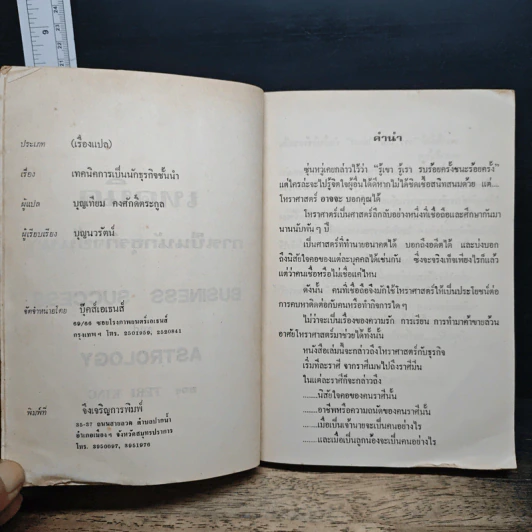 ประเภท (เรื่องแปล)
เรื่อง เทคนิคการเป็นนักธุรกิจชั้นนำ
ผู้แปล บุญเทียม คงศักดิ์ตระกูล
ผู้เรียบเรียง บุญนวรัตน์
จัดจำหน่ายโดย บุ๊คส์เอเยนส์
69/66 ซอยโรงภาพยนตร์เอเธนส์
กรุงเทพ ฯ โทร.
พิมพ์ที่ จึงเจริญการพิมพ์
35-37 ถนนสายลวด ตำบลปากน้ำ
อำเภอเมือง ฯ จังหวัดสมุทรปราการ
โทร.
คำนำ
ซุ่นหวู่เคยกล่าวไว้ว่า "รู้เขา รู้เรา รบร้อยครั้งชนะร้อยครั้ง"
แต่ใครล่ะจะไปรู้จิตใจผู้อื่นได้ดีหากไม่ได้ชิดเชื้อสนิทสนมด้วย แต่...
โหราศาสตร์ อาจจะ บอกคุณได้
โหราศาสตร์เป็นศาสตร์ลึกลับอย่างหนึ่งที่เชื่อถือและศึกษากันมา
นานนับพัน ๆ ปี
เป็นศาสตร์ที่ทำนายอนาคตได้ บอกถึงอดีตได้ และบ่งบอก
ถึงนิสัยใจคอของแต่ละบุคคลได้เช่นกัน ซึ่งจะจริงเท็จเพียงไรก็แล้ว
แต่ว่าคนเชื่อหรือไม่เชื่อแค่ไหน
ดังนั้น คนที่เชื่อถือจึงมักใช้โหราศาสตร์ให้เป็นประโยชน์ต่อ
การคบหาติดต่อกับคนหรือทำกิจการใด ๆ
ไม่ว่าจะเป็นเรื่องของความรัก การเรียน การทำมาค้าขายล้วน
อาศัยโหราศาสตร์มาช่วยได้ทั้งนั้น
หนังสือเล่มนี้จะกล่าวถึงโหราศาสตร์กับธุรกิจ
เริ่มทีละราศี จากราศีเมษไปถึงราศีมีน
ในแต่ละราศีก็จะกล่าวถึง
......นิสัยใจคอของคนราศีนั้น
......อาชีพหรือความถนัดของคนราศีนั้น
......เมื่อเป็นเจ้านายจะเป็นคนอย่างไร
......และเมื่อเป็นลูกน้องจะเป็นคนอย่างไร